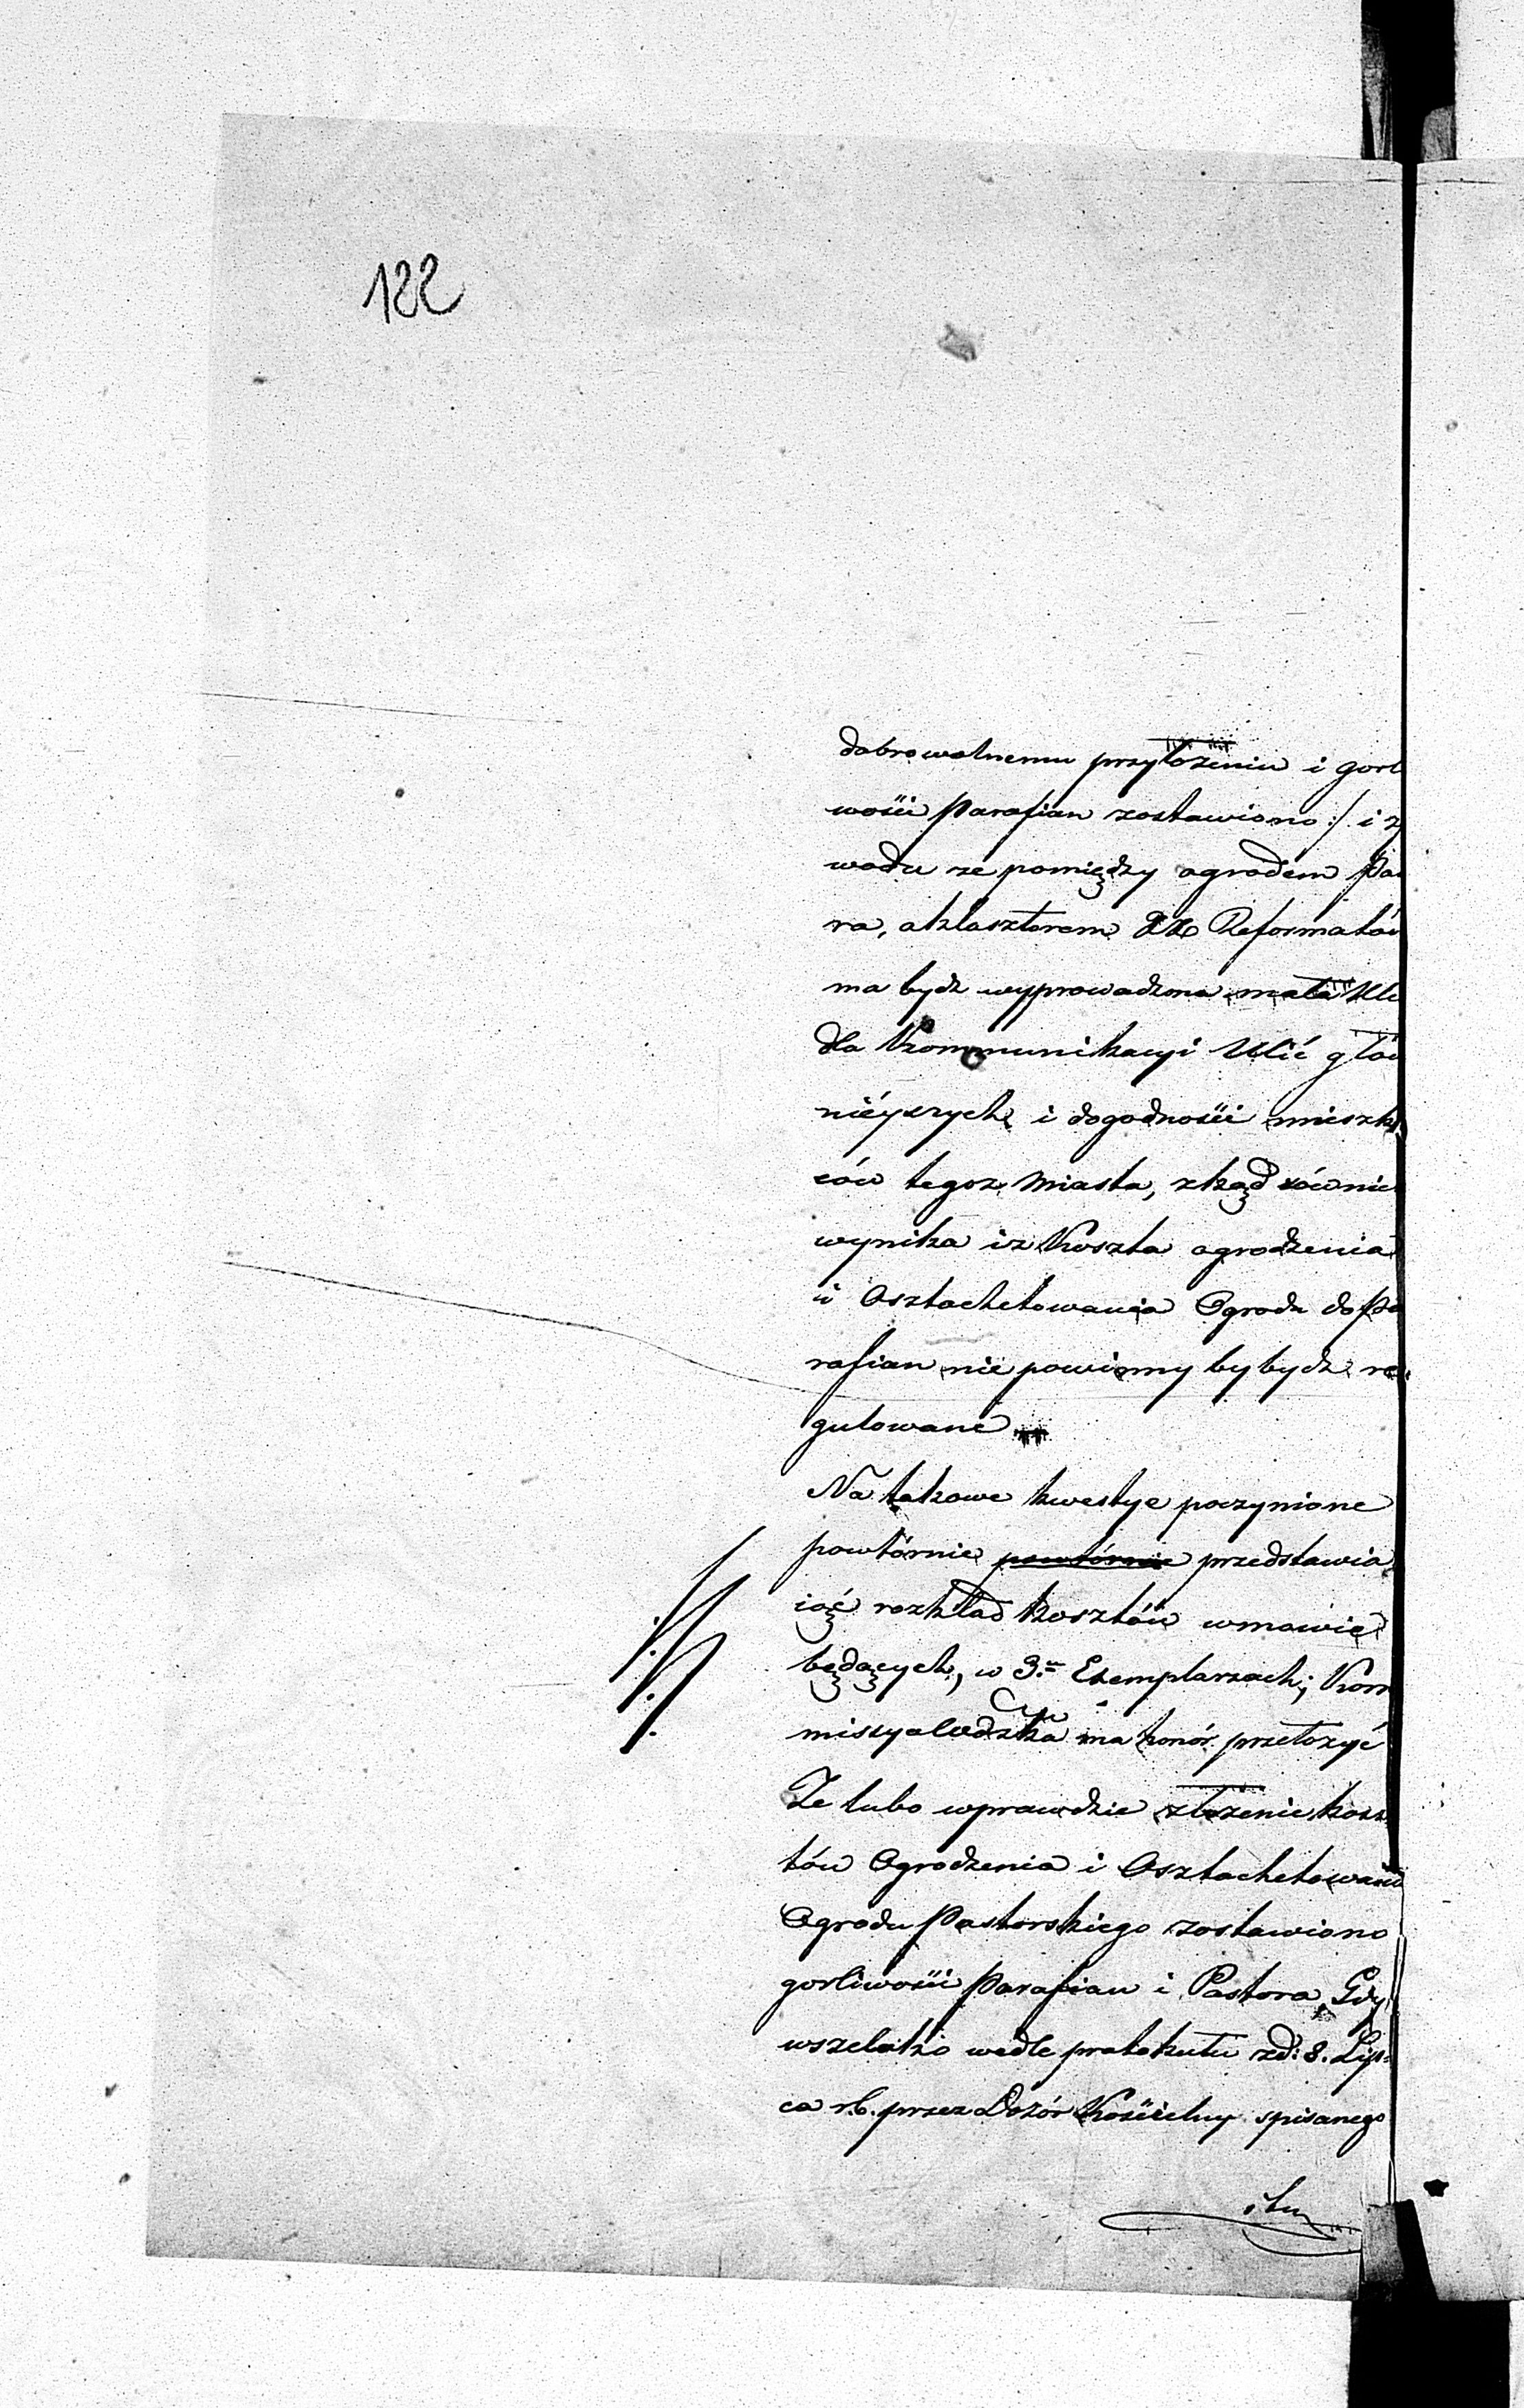 122
dobrowolnemu przyłożeniu i gorl
wości Parafian zostawiono :/ i z
wodu że pomiędzy ogrodem Pa
ra, a klasztorem XX Reformatów
ma bydź wyprowadzona mała Uli
dla Kommunikacyi Ulić głów
niéyszych i dogodności mieszk
ców tegoż Miasta, zkąd równie
wynika iż Koszta ogrodzenia
i Osztachetowania Ogrodu do Pa
rafian nie powinny by bydź re-
gulowane
Na takowe kwestye poczynione
powtórnie powtórnie przedstawia
iąć rozkład kosztów w mowie
będących, w 3.ch Exemplarzach; Kom
missya Wdzka ma honór przełożyć
Że lubo wprawdzie złożenie kosz
tów Ogrodzenia i Osztachetowania
Ogrodu Pastorskiego zostawiono
gorliwości Parafian i Pastora, Gdy
wszelako wedle protokułu zd: 8. Lip-
ca r.b. przez Dozór Kościelny spisanego